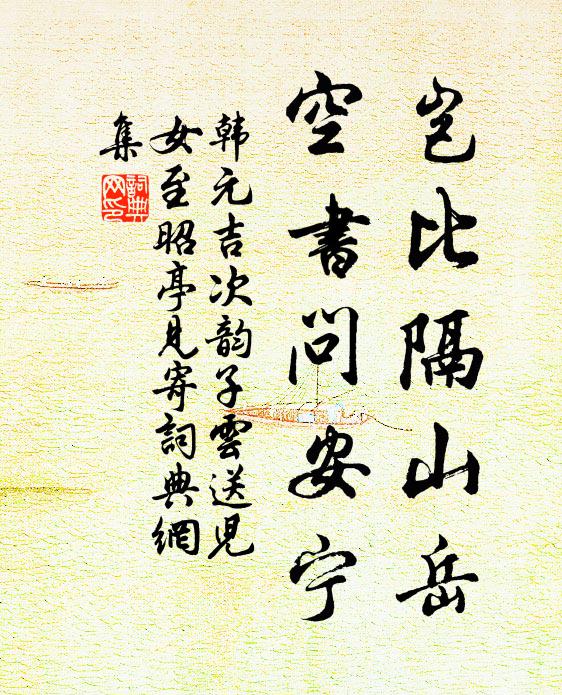 岂比隔山岳
空书问安宁
韩元吉次韵子雲送児
女至昭亭見寄詞典網
集
詞典
网印